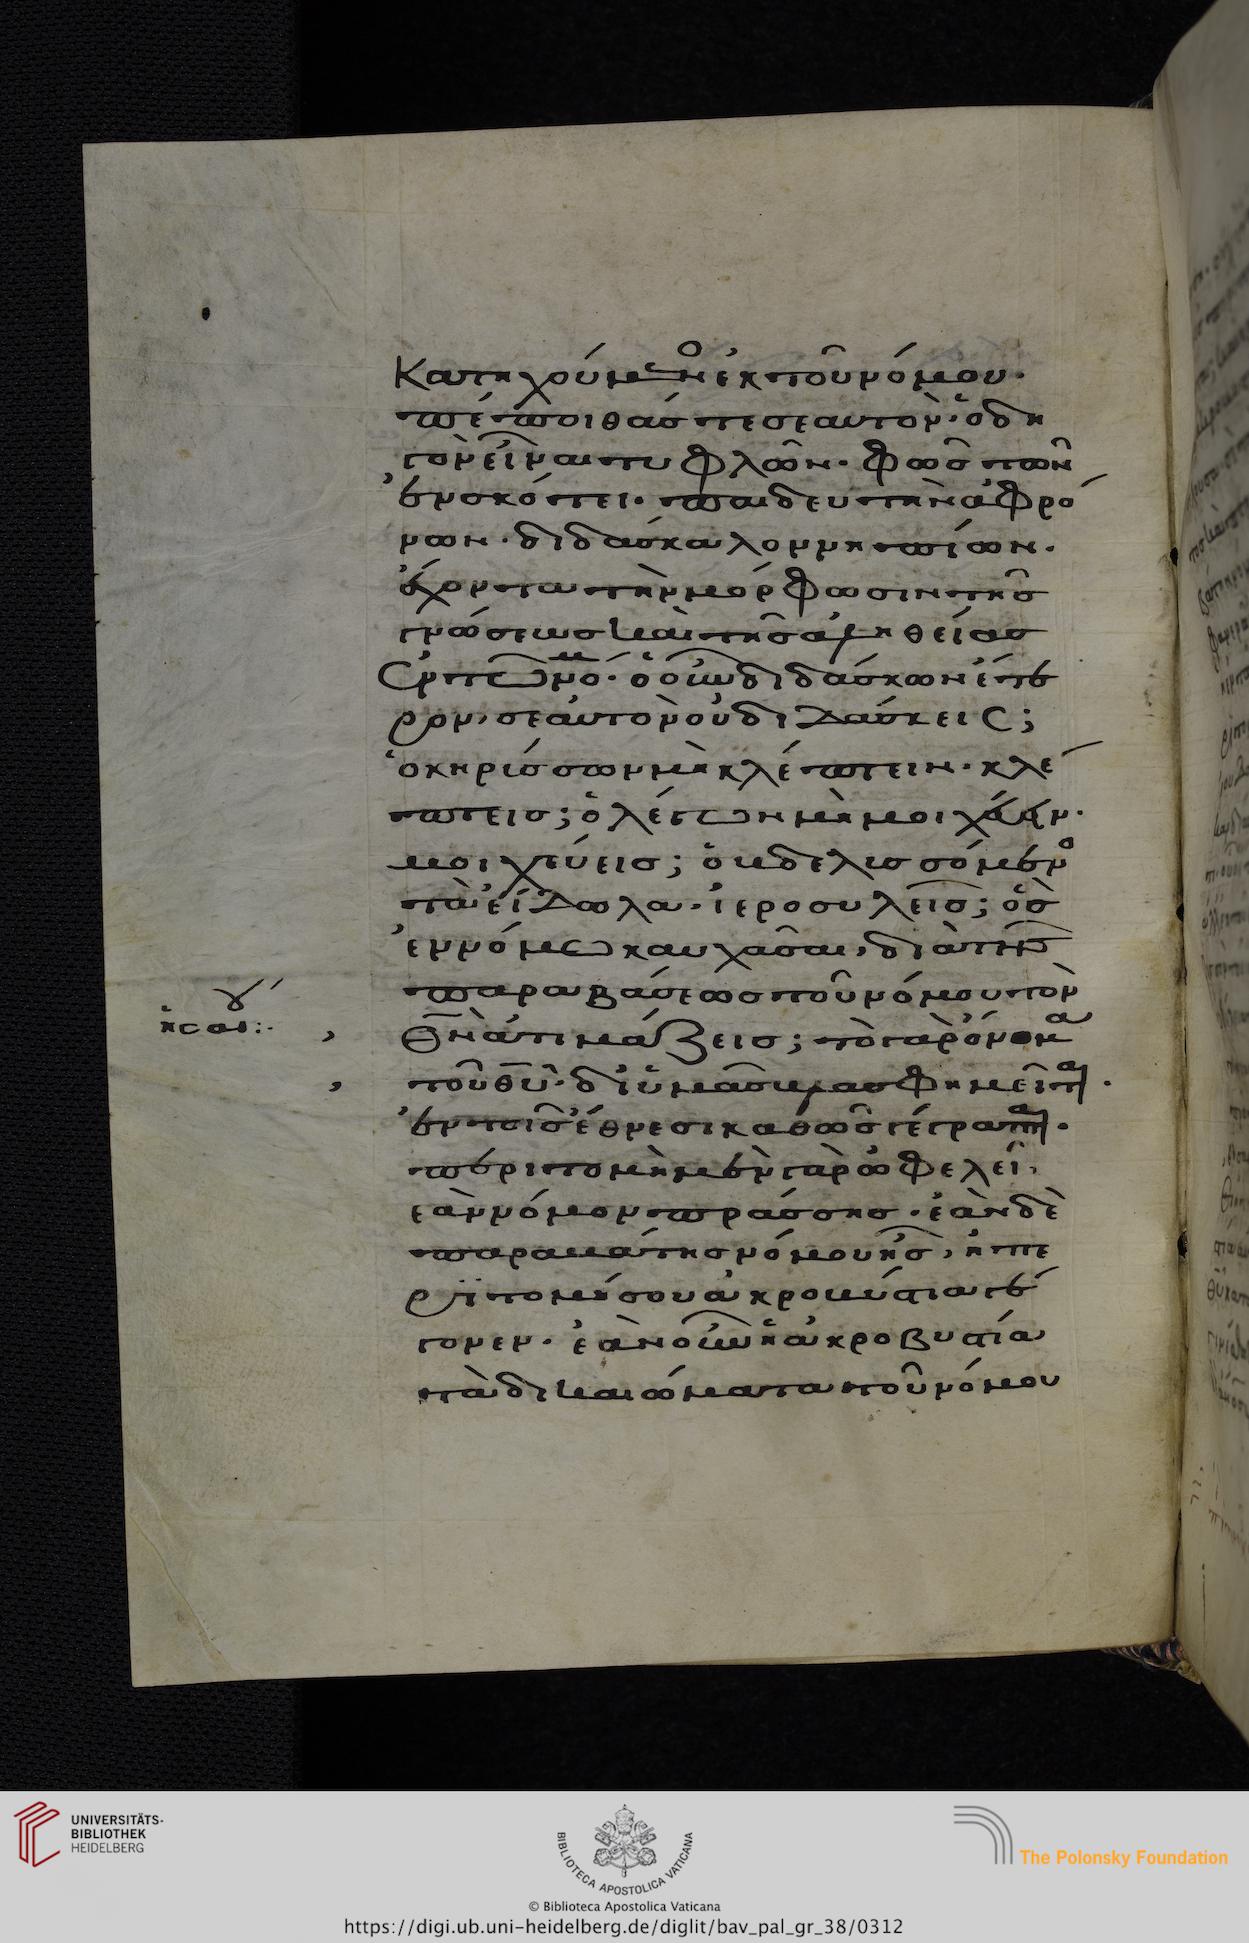 Κατηχούμενος ἐκ τοῦ νόμου·
πέποιθάς τε σεαυτὸν ὁδη
γὸν εἶναι τυφλῶν· φῶς τῶν
ἐν σκότει· παιδευτὴν ἀφρό
νων· διδάσκαλον νηπίων·
ἔχοντα τὴν μόρφωσιν τῆς
γνώσεως καὶ τῆς ἀληθείας
ἐν τῶ νόμω· ὁ οὖν διδάσκων ἕτε
ρον, σεαυτὸν οὐ διδάσκεις;
ὁ κηρίσσων μὴ κλέπτειν· κλέ
πτεις; ὁ λέγων μὴ μοιχάάν·
μοιχεύεις; ὁ βδελισσόμενος
τὰ εἴδωλα· ἱεροσυλεῖς; ὃς
ἐν νόμω καυχᾶσαι, διὰ τῆς
παραβάσεως τοῦ νόμου τὸν
γ΄
ἠσαι:·
θν̅ ἀτιμάζεις; τὸ γὰρ ὄνομα
τοῦ θυ̅· δι' ὑμᾶς βλασφημεῖται·
ἐν τοῖς ἔθνεσι καθὼς γέγραπται·
περιτομὴ μὲν γὰρ ὠφελεῖ,
ἐὰν νόμον πράσσης· ἐὰν δὲ
παραβάτης νόμου ῆς, ἡ πε
ριτομή σου ἀκροβυστία γέ
γονεν· ἐὰν οὖν ἡ ἀκροβυστία
τὰ δικαιώματα τοῦ νόμου
UNIVERSITÄTS-
BIBLIOTHEK
HEIDELBERG
BIBLIOTECA APOSTOLICA VATICANA
The Polonsky Foundation
© Biblioteca Apostolica Vaticana
https://digi.ub.uni-heidelberg.de/diglit/bav_pal_gr_38/0312